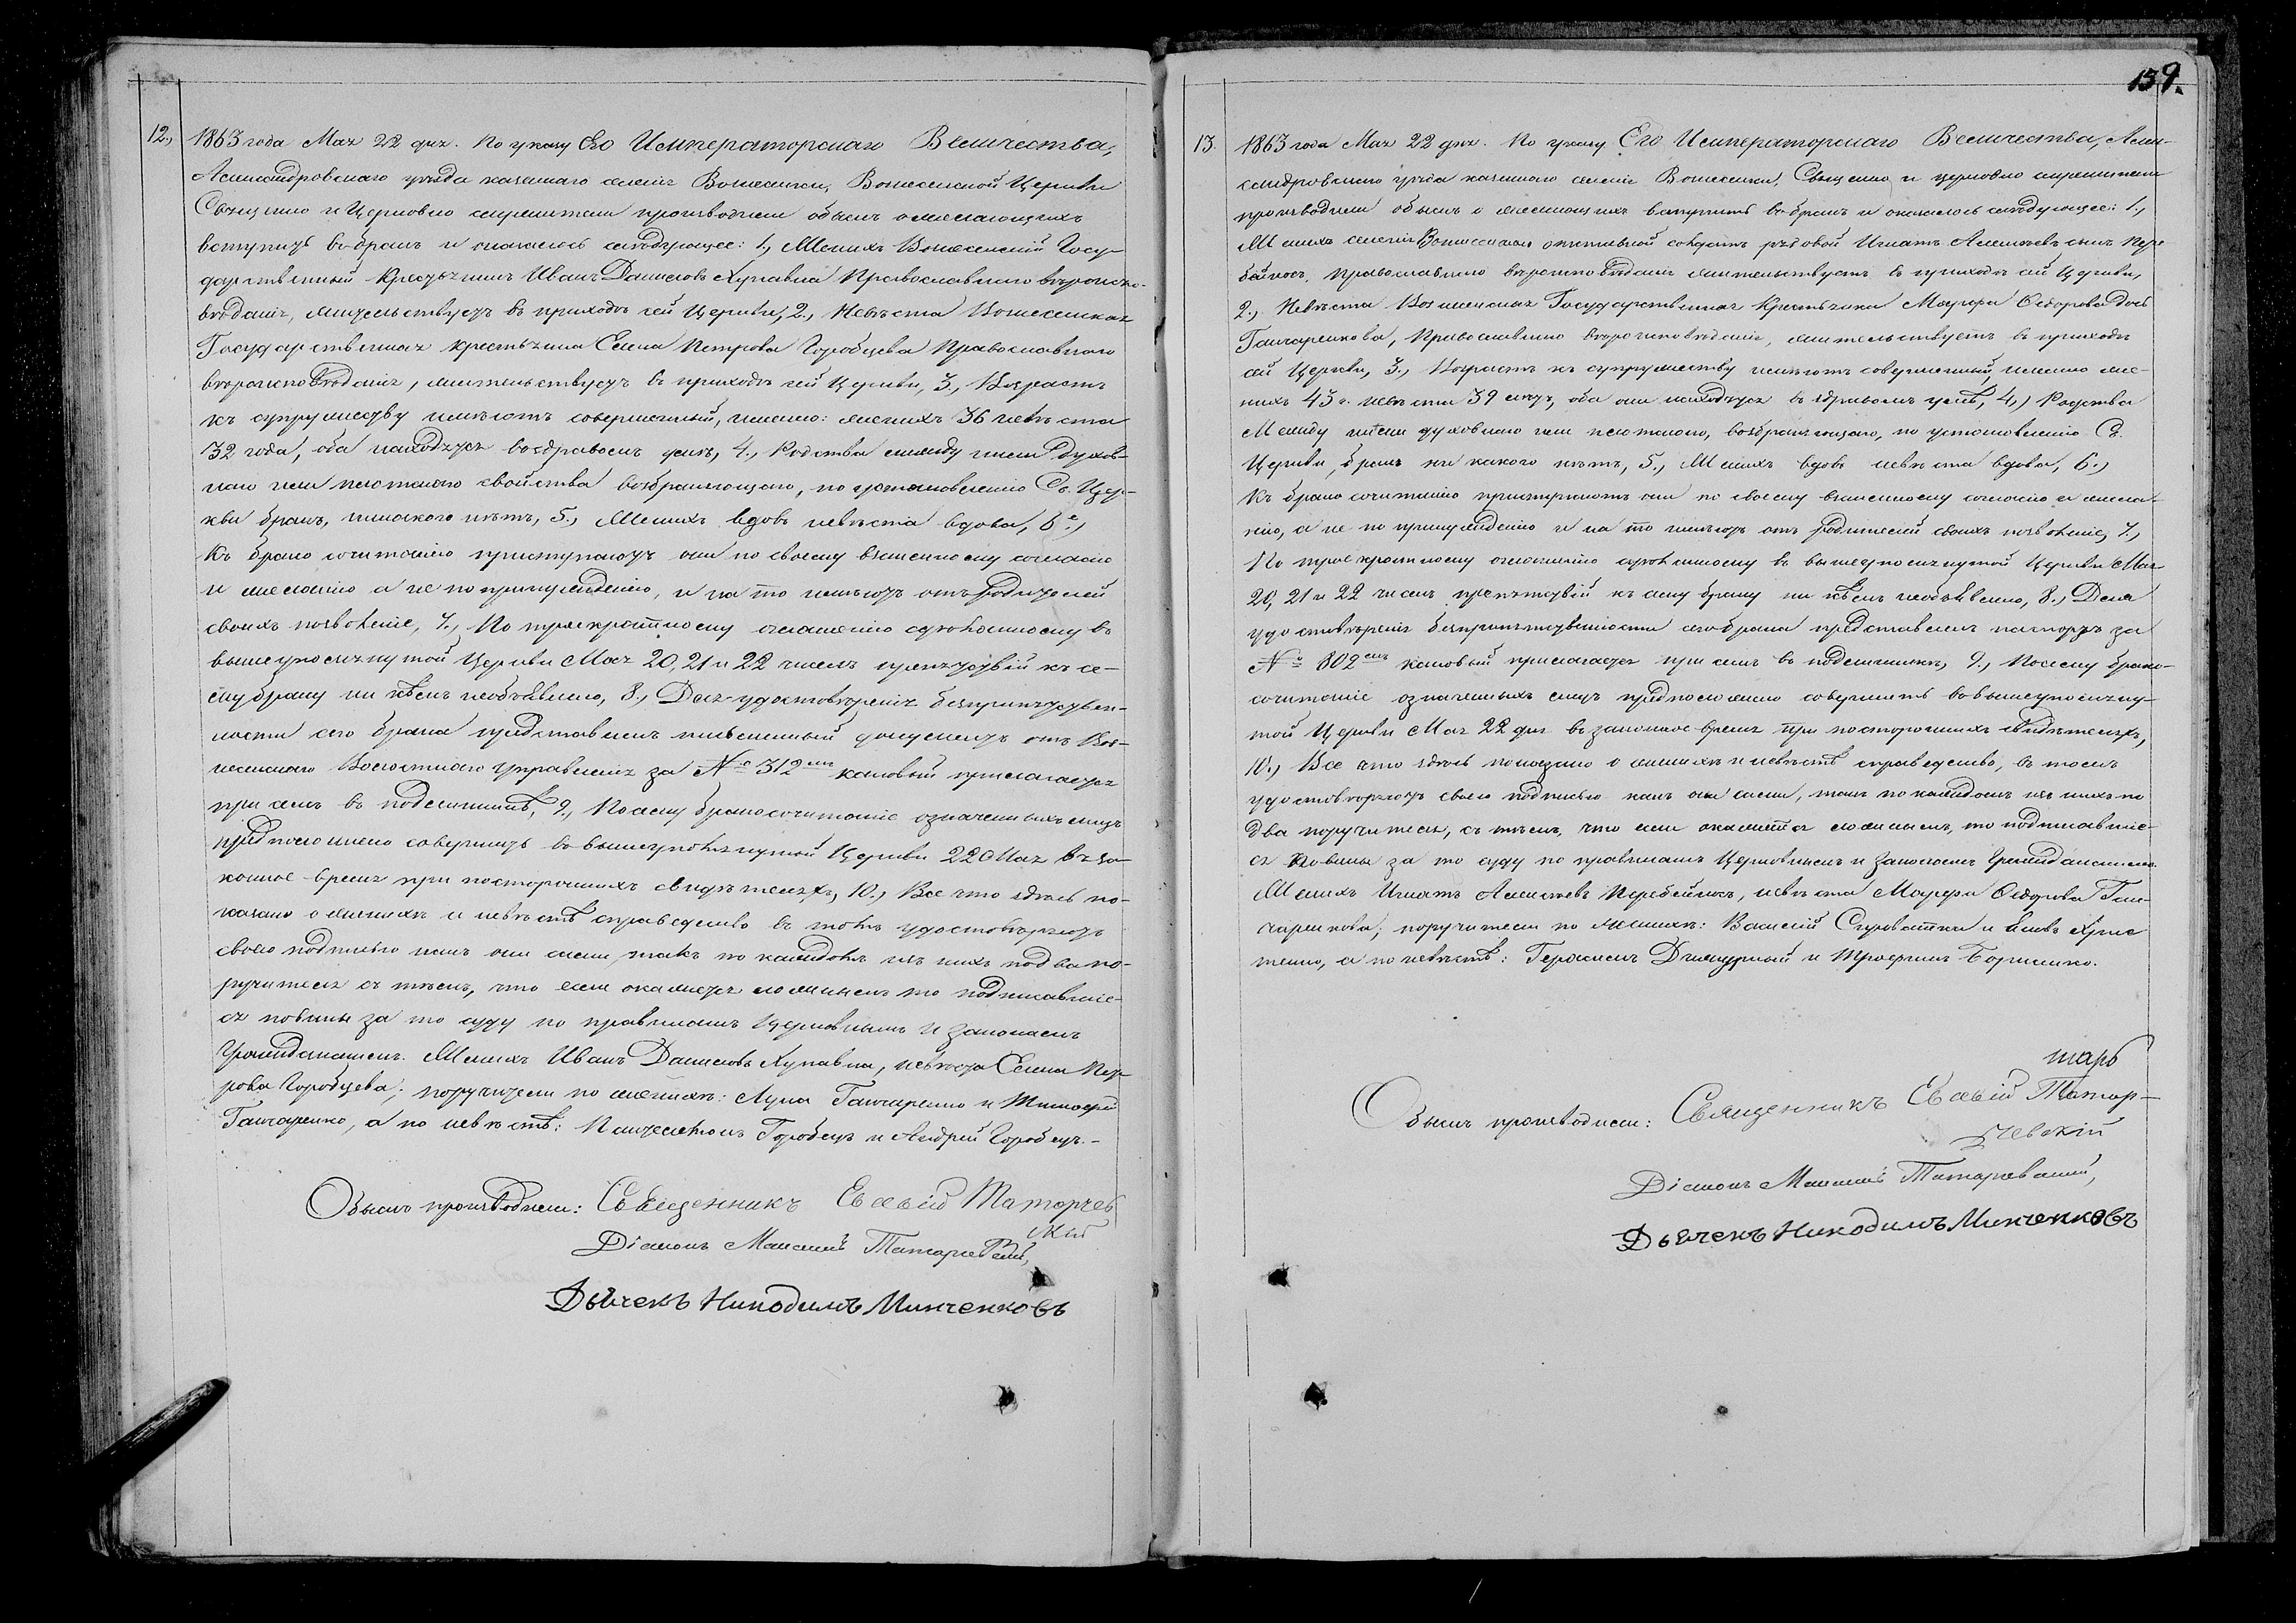 139.
12.,
1863 года Мая 22 дня. По указу Его Императорскаго Величества,
Александровскаго уѣзда казеннаго селенія Вознесенки, Вознесенской Церкви
Священно и Церковно служители производили обыскъ о желающихъ
вступить въ бракъ и оказалось слѣдующее: 1., Женихъ Вознесенскій Госу-
дарственный Крестьянинъ Иванъ Даниловъ Хупавка Православнаго вѣроиспо-
вѣданія, жительствуетъ въ приходѣ сей Церкви, 2., Невѣста Вознесенская
Государственная крестьянка Елена Петрова Горобцева Православнаго
вѣроисповѣданія, жительствуетъ въ приходѣ сей Церкви, 3., Возрастъ
къ супружеству имѣютъ совершенный, именно: женихъ 36 невѣста
32 года, оба находятся въ здравомъ умѣ, 4., Родства между ими духов-
наго или плотскаго свойства возбраняющаго, по установленію Св. Цер-
кви бракъ, никакого нѣтъ, 5., Женихъ вдовъ невѣста вдова, 6.,
Къ бракосочитанію приступаютъ они по своему взаимному согласію
и желанію а не по принужденію, и на то имѣютъ отъ родителей
своихъ позволеніе, 7., По троекратному оглашенію сдѣланному въ
вышеупомянутой Церкви Мая 20, 21 и 22 чиселъ препятствій къ се-
му браку ни кѣмъ необъявлено, 8., Для удостовѣренія безпрепятствен-
ности сего брака представленъ письменный документъ отъ Воз-
несенскаго Волостнаго Управленія за № 312мъ каковый прилагается
при семъ въ подлинникѣ, 9., По сему бракосочитаніе означенныхъ лицъ
предположено совершить въ вышеупомянутой Церкви 22 Мая въ за-
конное время при постороннихъ свидѣтеляхъ, 10., Все что здѣсь по-
казано о женихѣ и невѣстѣ справедливо въ томъ удостовѣряютъ
своею подписью какъ они сами, такъ по каждомъ изъ нихъ по два по-
ручителя съ тѣмъ, что если окажется ложнымъ то подписавшіе-
ся повины за то суду по правиламъ Церковнымъ и законамъ
Гражданскимъ. Женихъ Иванъ Даниловъ Хупавка, невѣста Елена Пет-
рова Горобцева; поручители по женихѣ: Лука Ганчаренко и Тимофей
Ганчаренко, а по невѣстѣ: Пантелеймонъ Горобецъ и Андрей Горобецъ.-
Обыскъ производили: Священникъ Евсевій Татарчев
скій
Діаконъ Татарчевскій,
Дьячекъ Никодимъ Минченковъ
13.
1863 года Мая 22 дня. По указу Его Императорскаго Величества, Алек-
сандровскаго уѣзда казеннаго селенія Вознесенки, Священно и церковно служители
производили обыскъ о желающихъ вступить въ бракъ и оказалось слѣдующее: 1.,
Женихъ селенія Вознесенки отставной солдатъ рядовой Игнатъ Алексѣевъ сынъ Пере-
бейносъ, православнаго вѣроисповѣданія жительствуетъ въ приходѣ сей Церкви,
2., Невѣста Вознесенская Государственная Крестьянка Марфа Ѳедорова дочь
Ганчаренкова, Православнаго вѣроисповѣданія, жительствуетъ въ приходѣ
сей Церкви, 3., Возрастъ къ супружеству имѣютъ совершенный, именно же-
нихъ 43 г. невѣста 39 лѣтъ, оба они находятся въ здравомъ умѣ, 4.) Родства
Между ними духовнаго или плотскаго, возбраняющаго, по установленію Св.
Церкви, бракъ ни какого нѣтъ, 5., Женихъ вдовъ невѣста вдова, 6.,
Къ бракосочитанію приступаютъ они по своему взаимному согласію и жела-
нію, а не по принужденію и на то имѣютъ отъ родителей своихъ позволеніе, 7.,
По троекратному оглашенію сдѣланному въ вышеупомянутой Церкви Мая
20, 21 и 22 чиселъ препятствій къ сему браку ни кѣмъ необъявлено, 8., Для
удостовѣренія безпрепятственности сего брака представленъ паспортъ за
№ 802мъ каковый прилагается при семъ въ подлинникѣ, 9., По сему брако-
сочитаніе означенныхъ лицъ предположено совершить въ вышеупомяну-
той Церкви Мая 22 дня въ законное время при постороннихъ свидѣтеляхъ,
10., Все что здѣсь показано о женихѣ и невѣстѣ справедливо, въ томъ
удостовѣряютъ своею подписью какъ они сами, такъ по каждомъ изъ нихъ по
два поручителя, съ тѣмъ, что если окажется ложнымъ, то подписавшіе-
ся повины за то суду по правиламъ Церковнымъ и Законамъ Гражданскимъ.
Женихъ Игнатъ Алексѣевъ Перебейносъ, невѣста Марфа Ѳедорова Ган-
чаренкова; поручители по женихѣ: Василій Сыроватка и
а по невѣстѣ: Герасимъ и Трофимъ Борисенко.
тарь
Обыскъ производили: Священникъ Евсевій Татар-
чевскій
Діаконъ Татарчевскій,
Дьячекъ Никодимъ Минченковъ